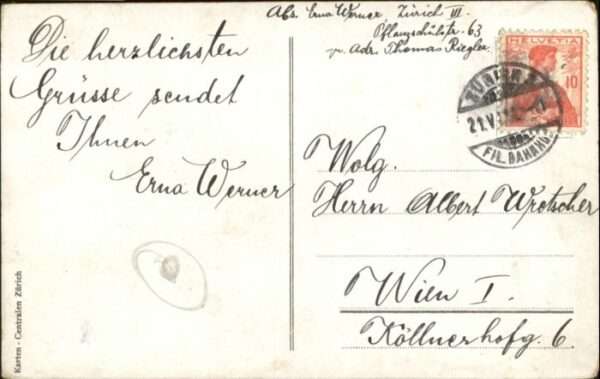 Abs. Erna Werner, Zürich III.
Pflanzschulstr. 63
Adr. Thomas Riegler
Die herzlichsten
Grüsse sendet
Ihnen
Erna Werner
HELVETIA
10
ZÜRICH
21.V.
FIL. BAHNH.
Wolg.
Herrn Albert Wretscher
Wien I.
Köllnerhofg. 6
Karten - Centralen Zürich